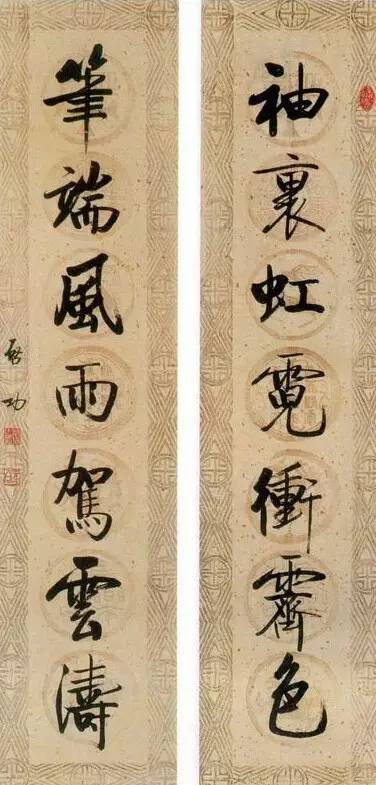 袖裏虹霓衝霽色
筆端風雨駕雲濤
启功